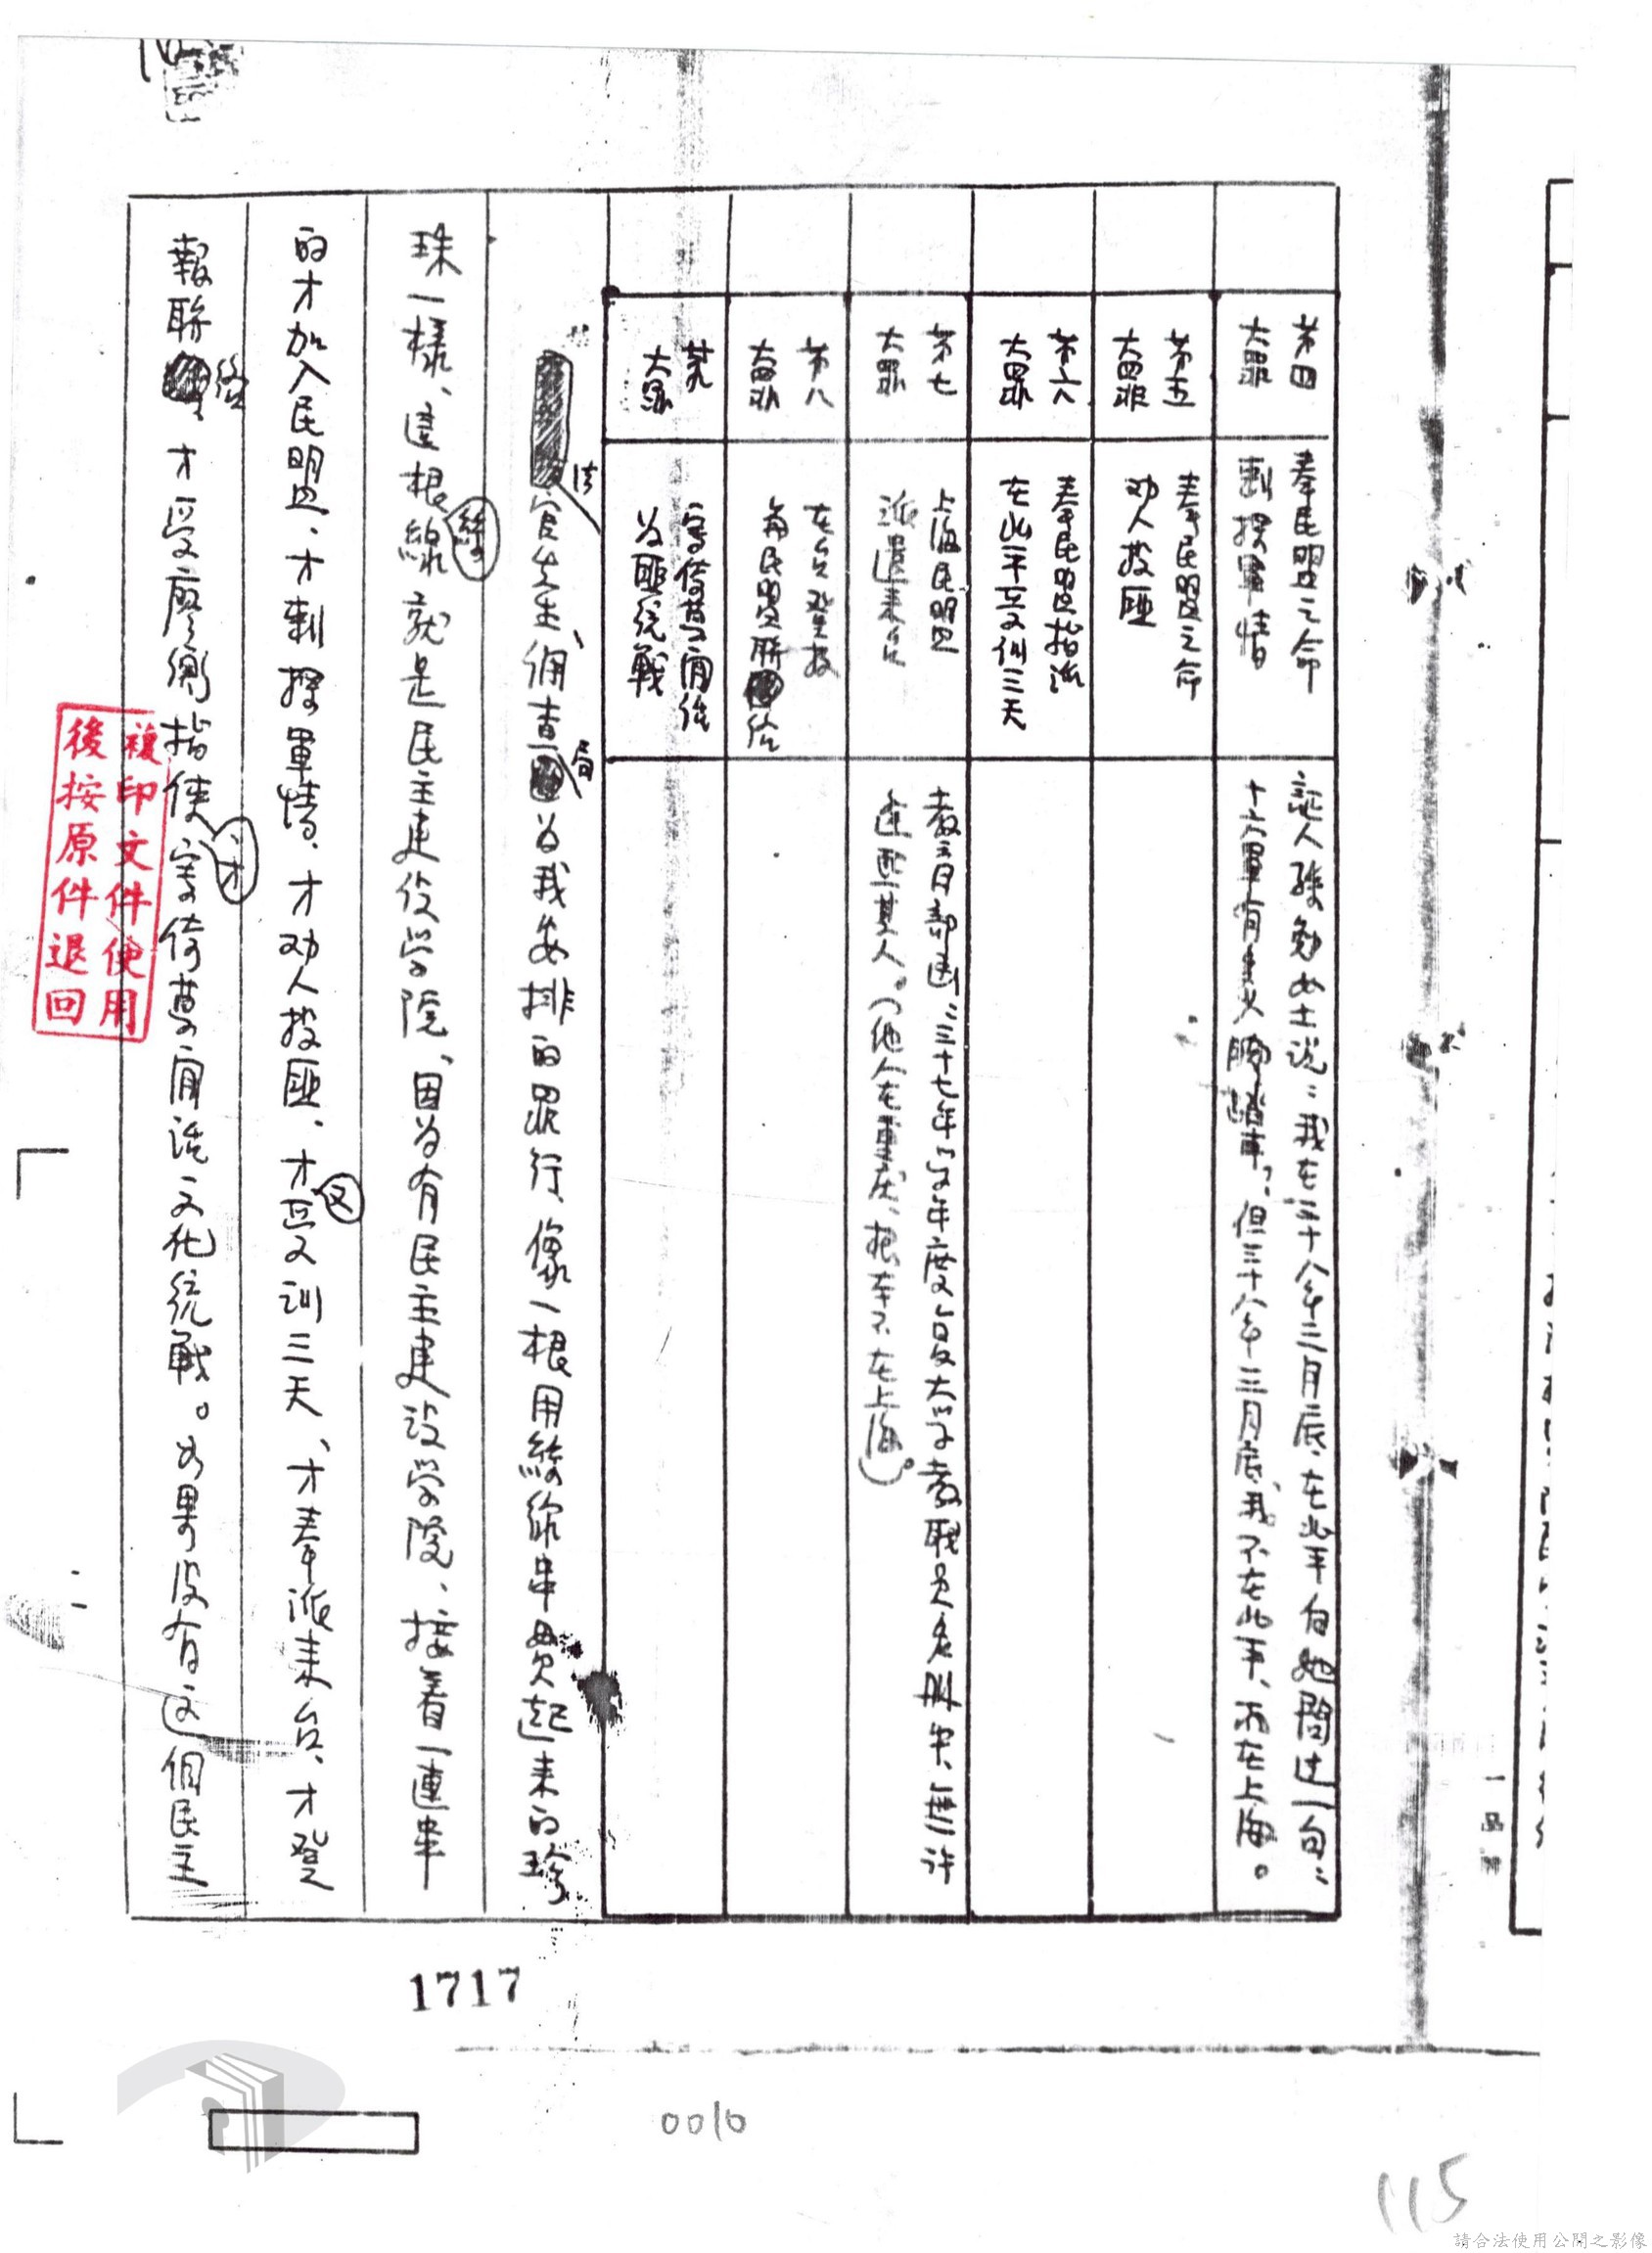 第四
大罪
奉民盟之命
刺探軍情
証人孫勉女士說：我在三十八年三月底、在北平向她問过一句：
十六軍有多少大砲戰車？但三十八年三月底、我不在北平、而在上海。
第五
大罪
奉民盟之命
劝人投匪
第六
大罪
奉民盟指派
在北平受训三天
第七
大罪
上海民盟
派遣來台
教育部函：三十七年学年度复旦大学教职员名册中、無許
逢熙其人。（他人在重庆、根本不在上海）。
第八
大罪
在台登报
與民盟联络
第九
大罪
寄倚夢閒話
为匪統戰
法官先生、調查局为我安排的罪行、像一根用絲線串貫起来的珍
珠一樣、這根絲線就是民主建设学院、因为有民主建设学院、接着一連串
的才加入民盟、才刺探軍情、才劝人投匪、才受训三天、才奉派来台、才登
報联络、才受廖衡指使、才寄倚夢閒話文化統戰。如果没有这個民主
複印文件使用
後按原件退回
一品
1717
0010
115
請合法使用公開之影像